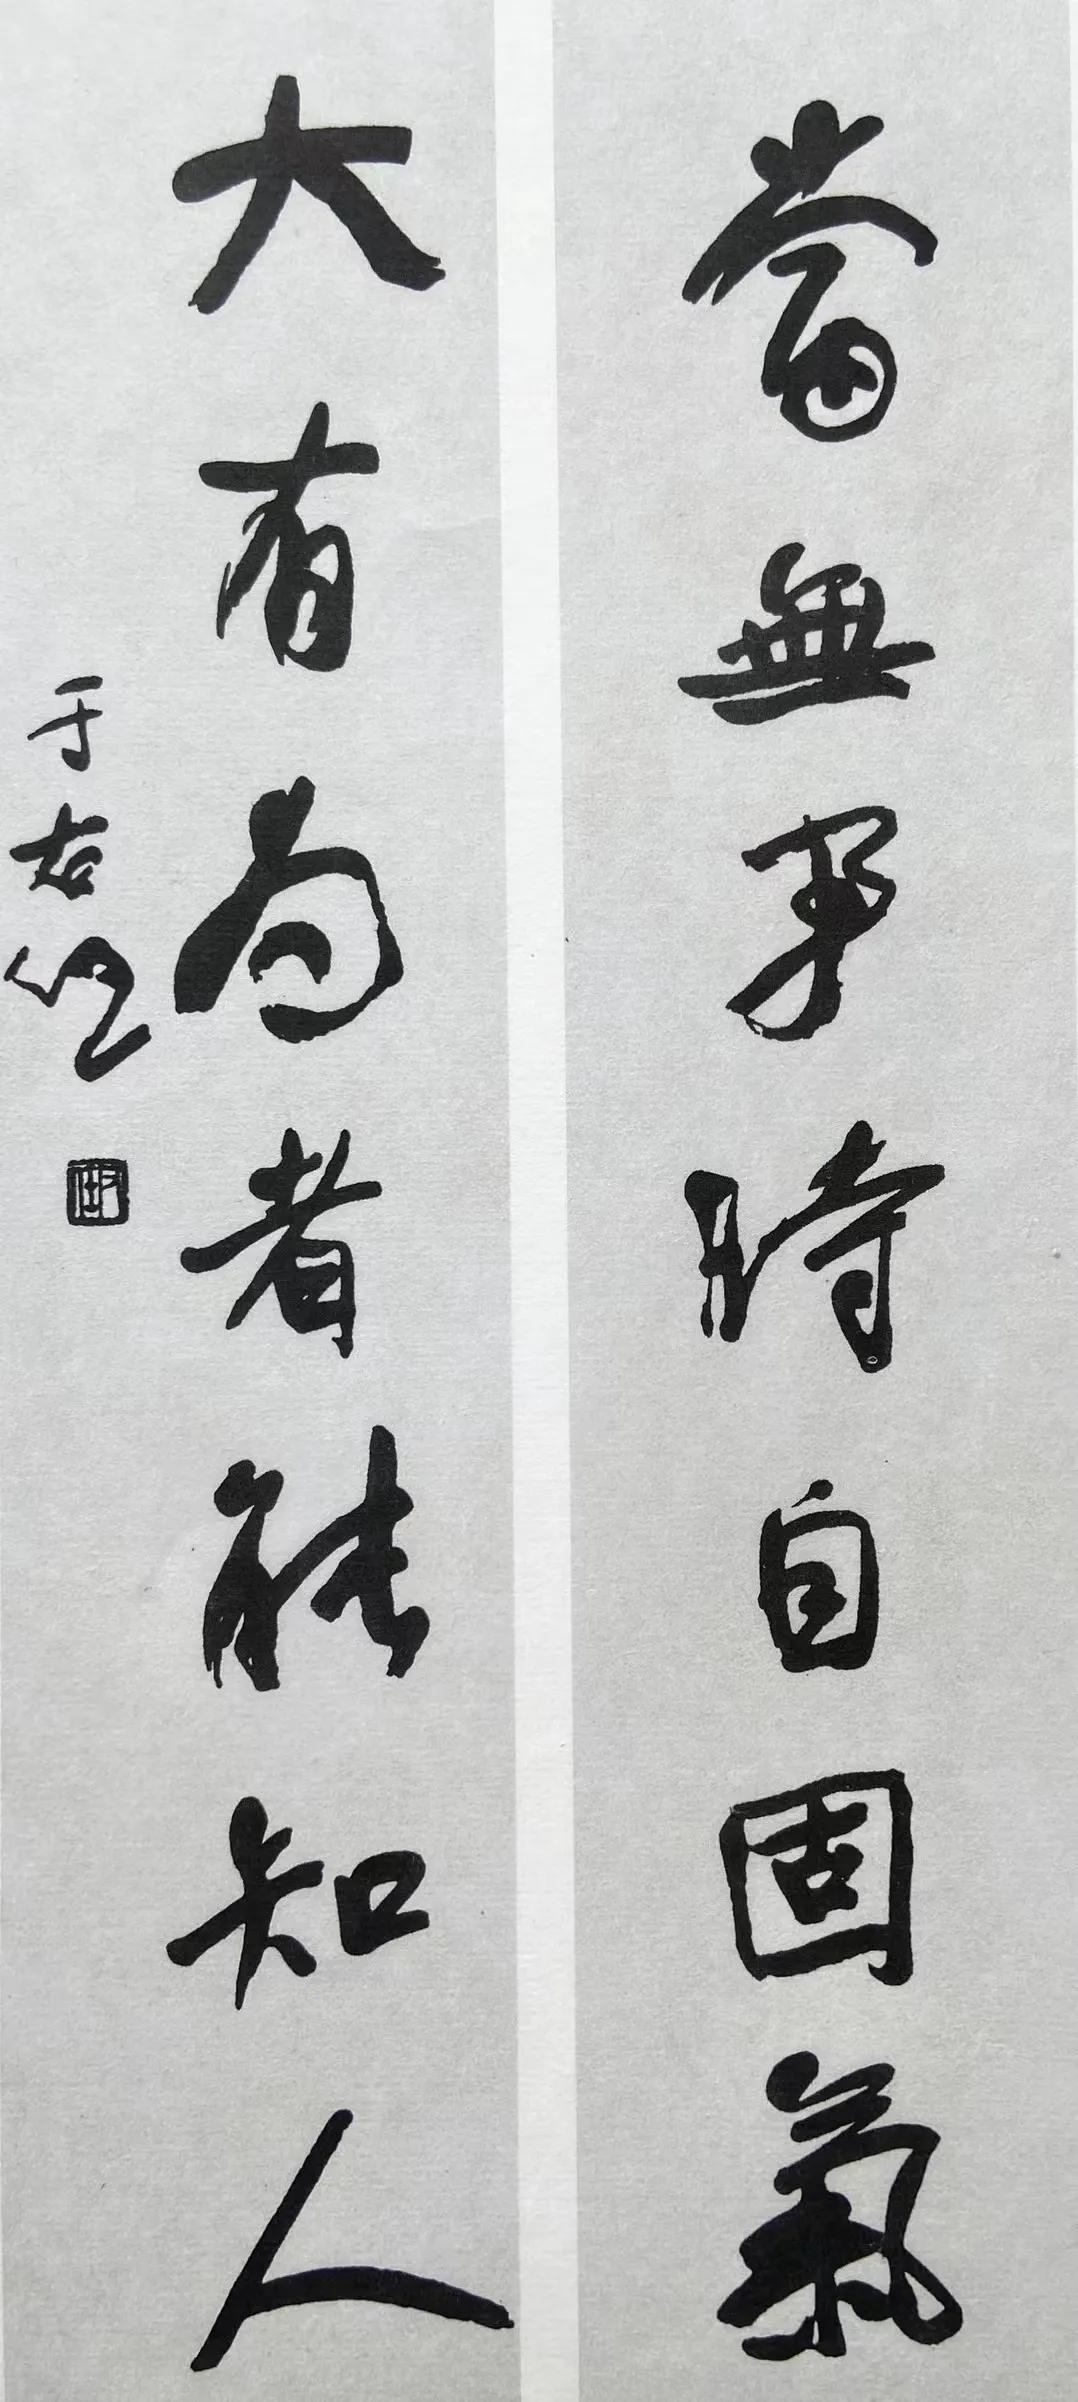 當無事時自固氣
大有為者能知人
于右任